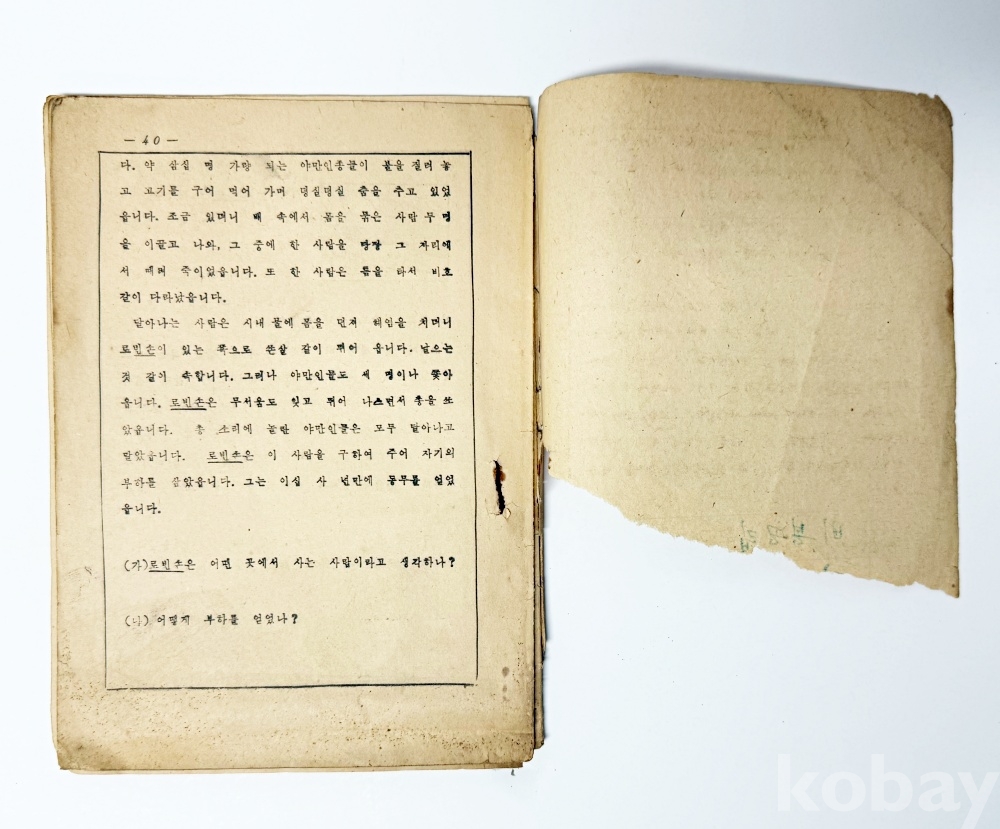 — 40 —
다. 약 삼십 명 가량 되는 야만인종들이 불을 질러 놓
고 고기를 구어 먹어 가며 덩실덩실 춤을 추고 있었
읍니다. 조금 있더니 배 속에서 몸을 묶은 사람 두 명
을 이끌고 나와, 그 중에 한 사람을 당장 그 자리에
서 때려 죽이었읍니다. 또 한 사람은 틈을 타서 비호
같이 다라났읍니다.
달아나는 사람은 시내 물에 몸을 던져 헤임을 치더니
로빈손이 있는 쪽으로 쏜살 같이 뛰어 옵니다. 날으는
것 같이 속합니다. 그러나 야만인들도 세 명이나 쫓아
옵니다. 로빈손은 무서움도 잊고 뛰어 나스면서 총을 쏘
았읍니다. 총 소리에 놀란 야만인들은 모두 달아나고
말았읍니다. 로빈손은 이 사람을 구하여 주어 자기의
부하를 삼았읍니다. 그는 이십 사 년만에 동무를 얻었
읍니다.
(가) 로빈손은 어떤 곳에서 사는 사람이라고 생각하나?
(나) 어떻게 부하를 얻었나?
kobay